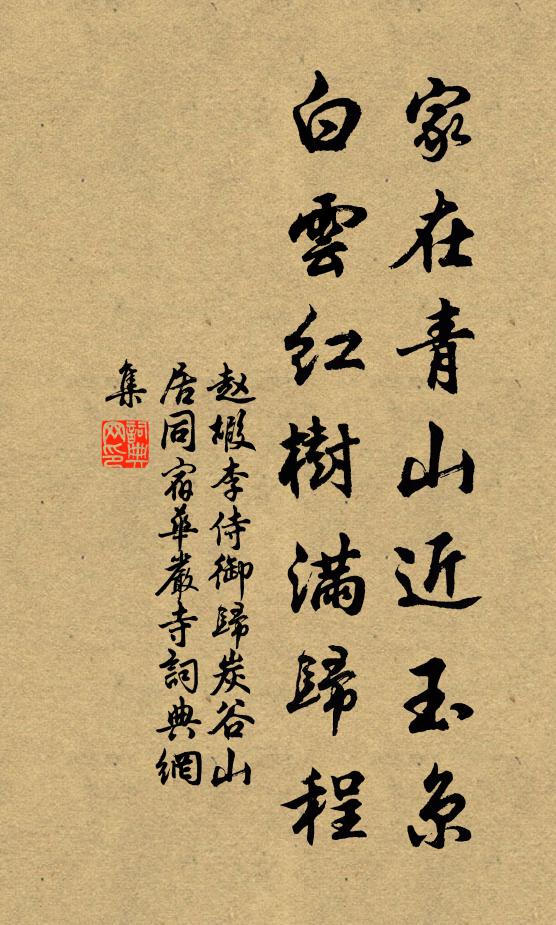 家在青山近玉京
白雲紅樹滿歸程
赵嘏李侍御歸炭谷山
居同宿華嚴寺詞典網
集
詞典
网印